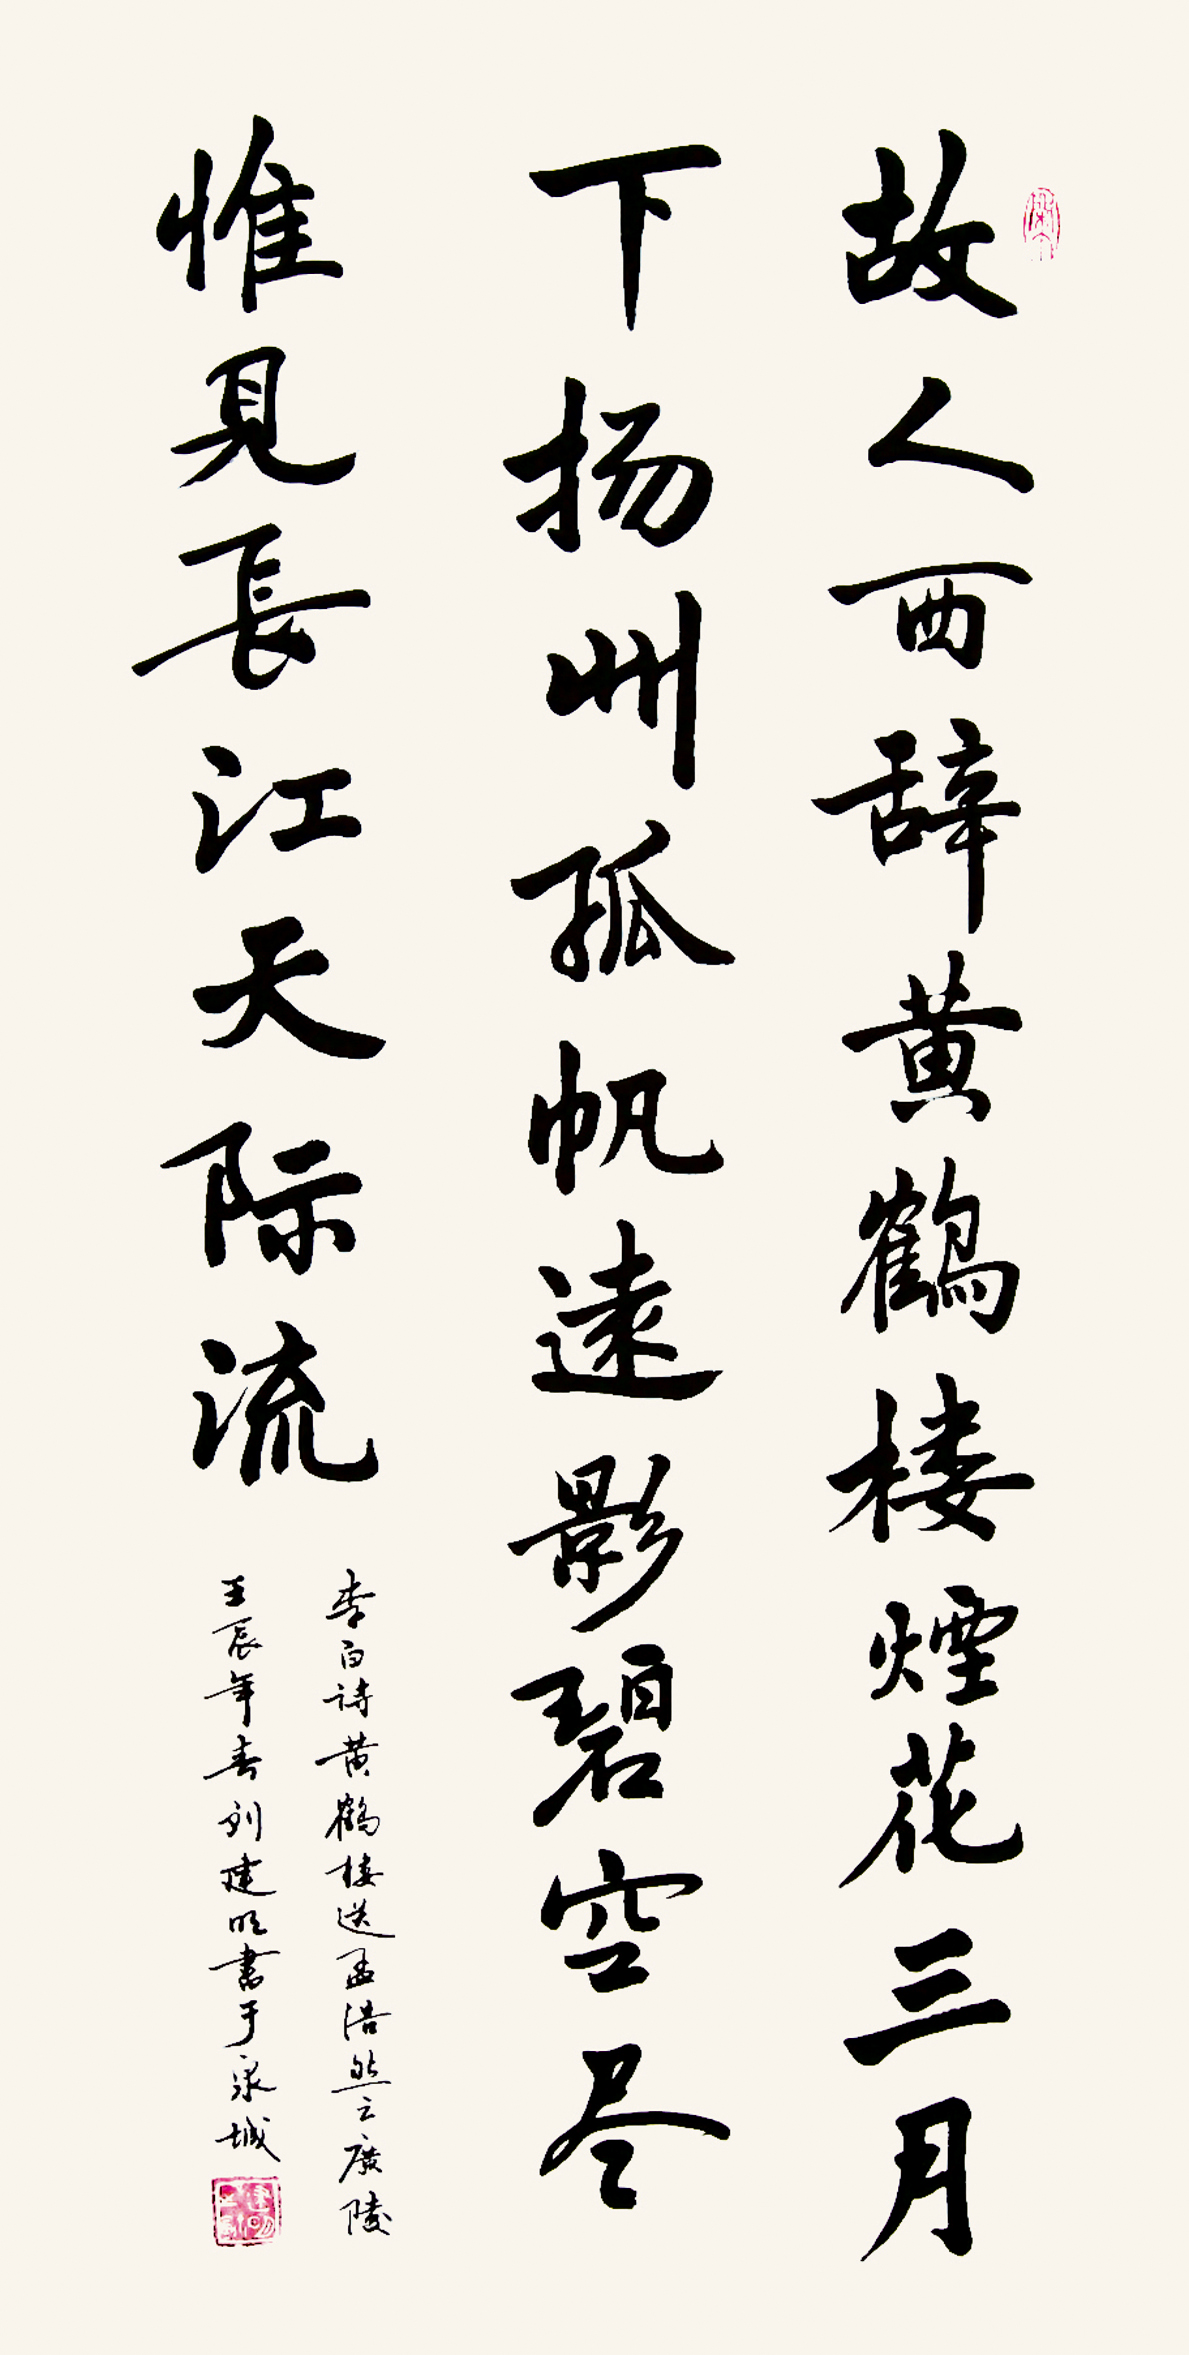 故人西辞黄鹤楼煙花三月
下扬州孤帆遠影碧空尽
惟見長江天际流
李白诗黄鹤楼送孟浩然之廣陵
壬辰年春刘建明書于泉城